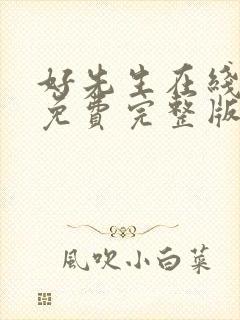 好先生在线
免费完整版
風吹小白菜